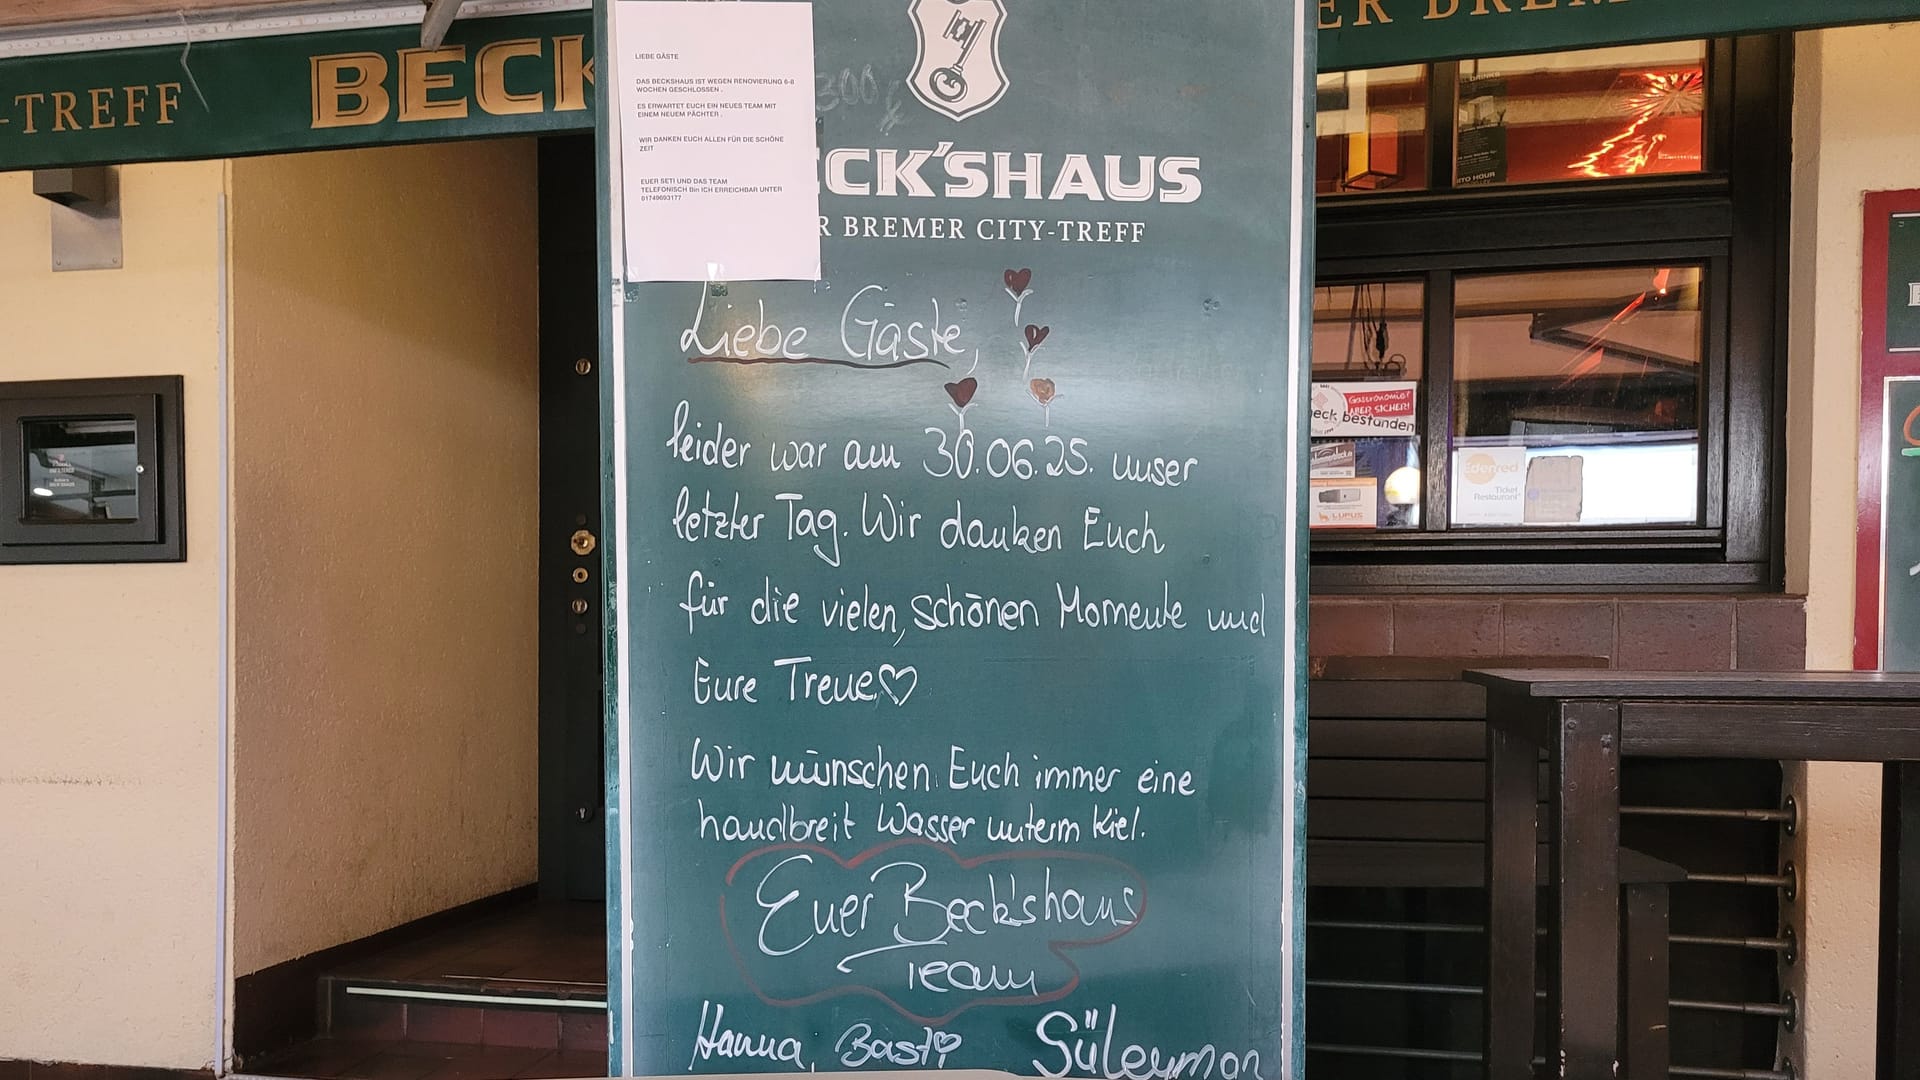 -TREFF
BECK
ER BREM
LIEBE GÄSTE
DAS BECKSHAUS IST WEGEN RENOVIERUNG 6-8
WOCHEN GESCHLOSSEN .
ES ERWARTET EUCH EIN NEUES TEAM MIT
EINEM NEUEM PÄCHTER .
WIR DANKEN EUCH ALLEN FÜR DIE SCHÖNE
ZEIT
EUER SETI UND DAS TEAM
TELEFONISCH Bin ICH ERREICHBAR UNTER
01749693177
ECK'SHAUS
R BREMER CITY-TREFF
Liebe Gäste,
leider war am 30.06.25. unser
letzter Tag. Wir danken Euch
für die vielen, schönen Momente und
Eure Treue♡
Wir wünschen Euch immer eine
handbreit Wasser unterm Kiel.
Euer Beck'shaus
Team
Hanna, Basti♡ Süleyman
Gastronomie?
ABER SICHER!
eck bestanden
LUPUS
Edenred
Ticket
Restaurant